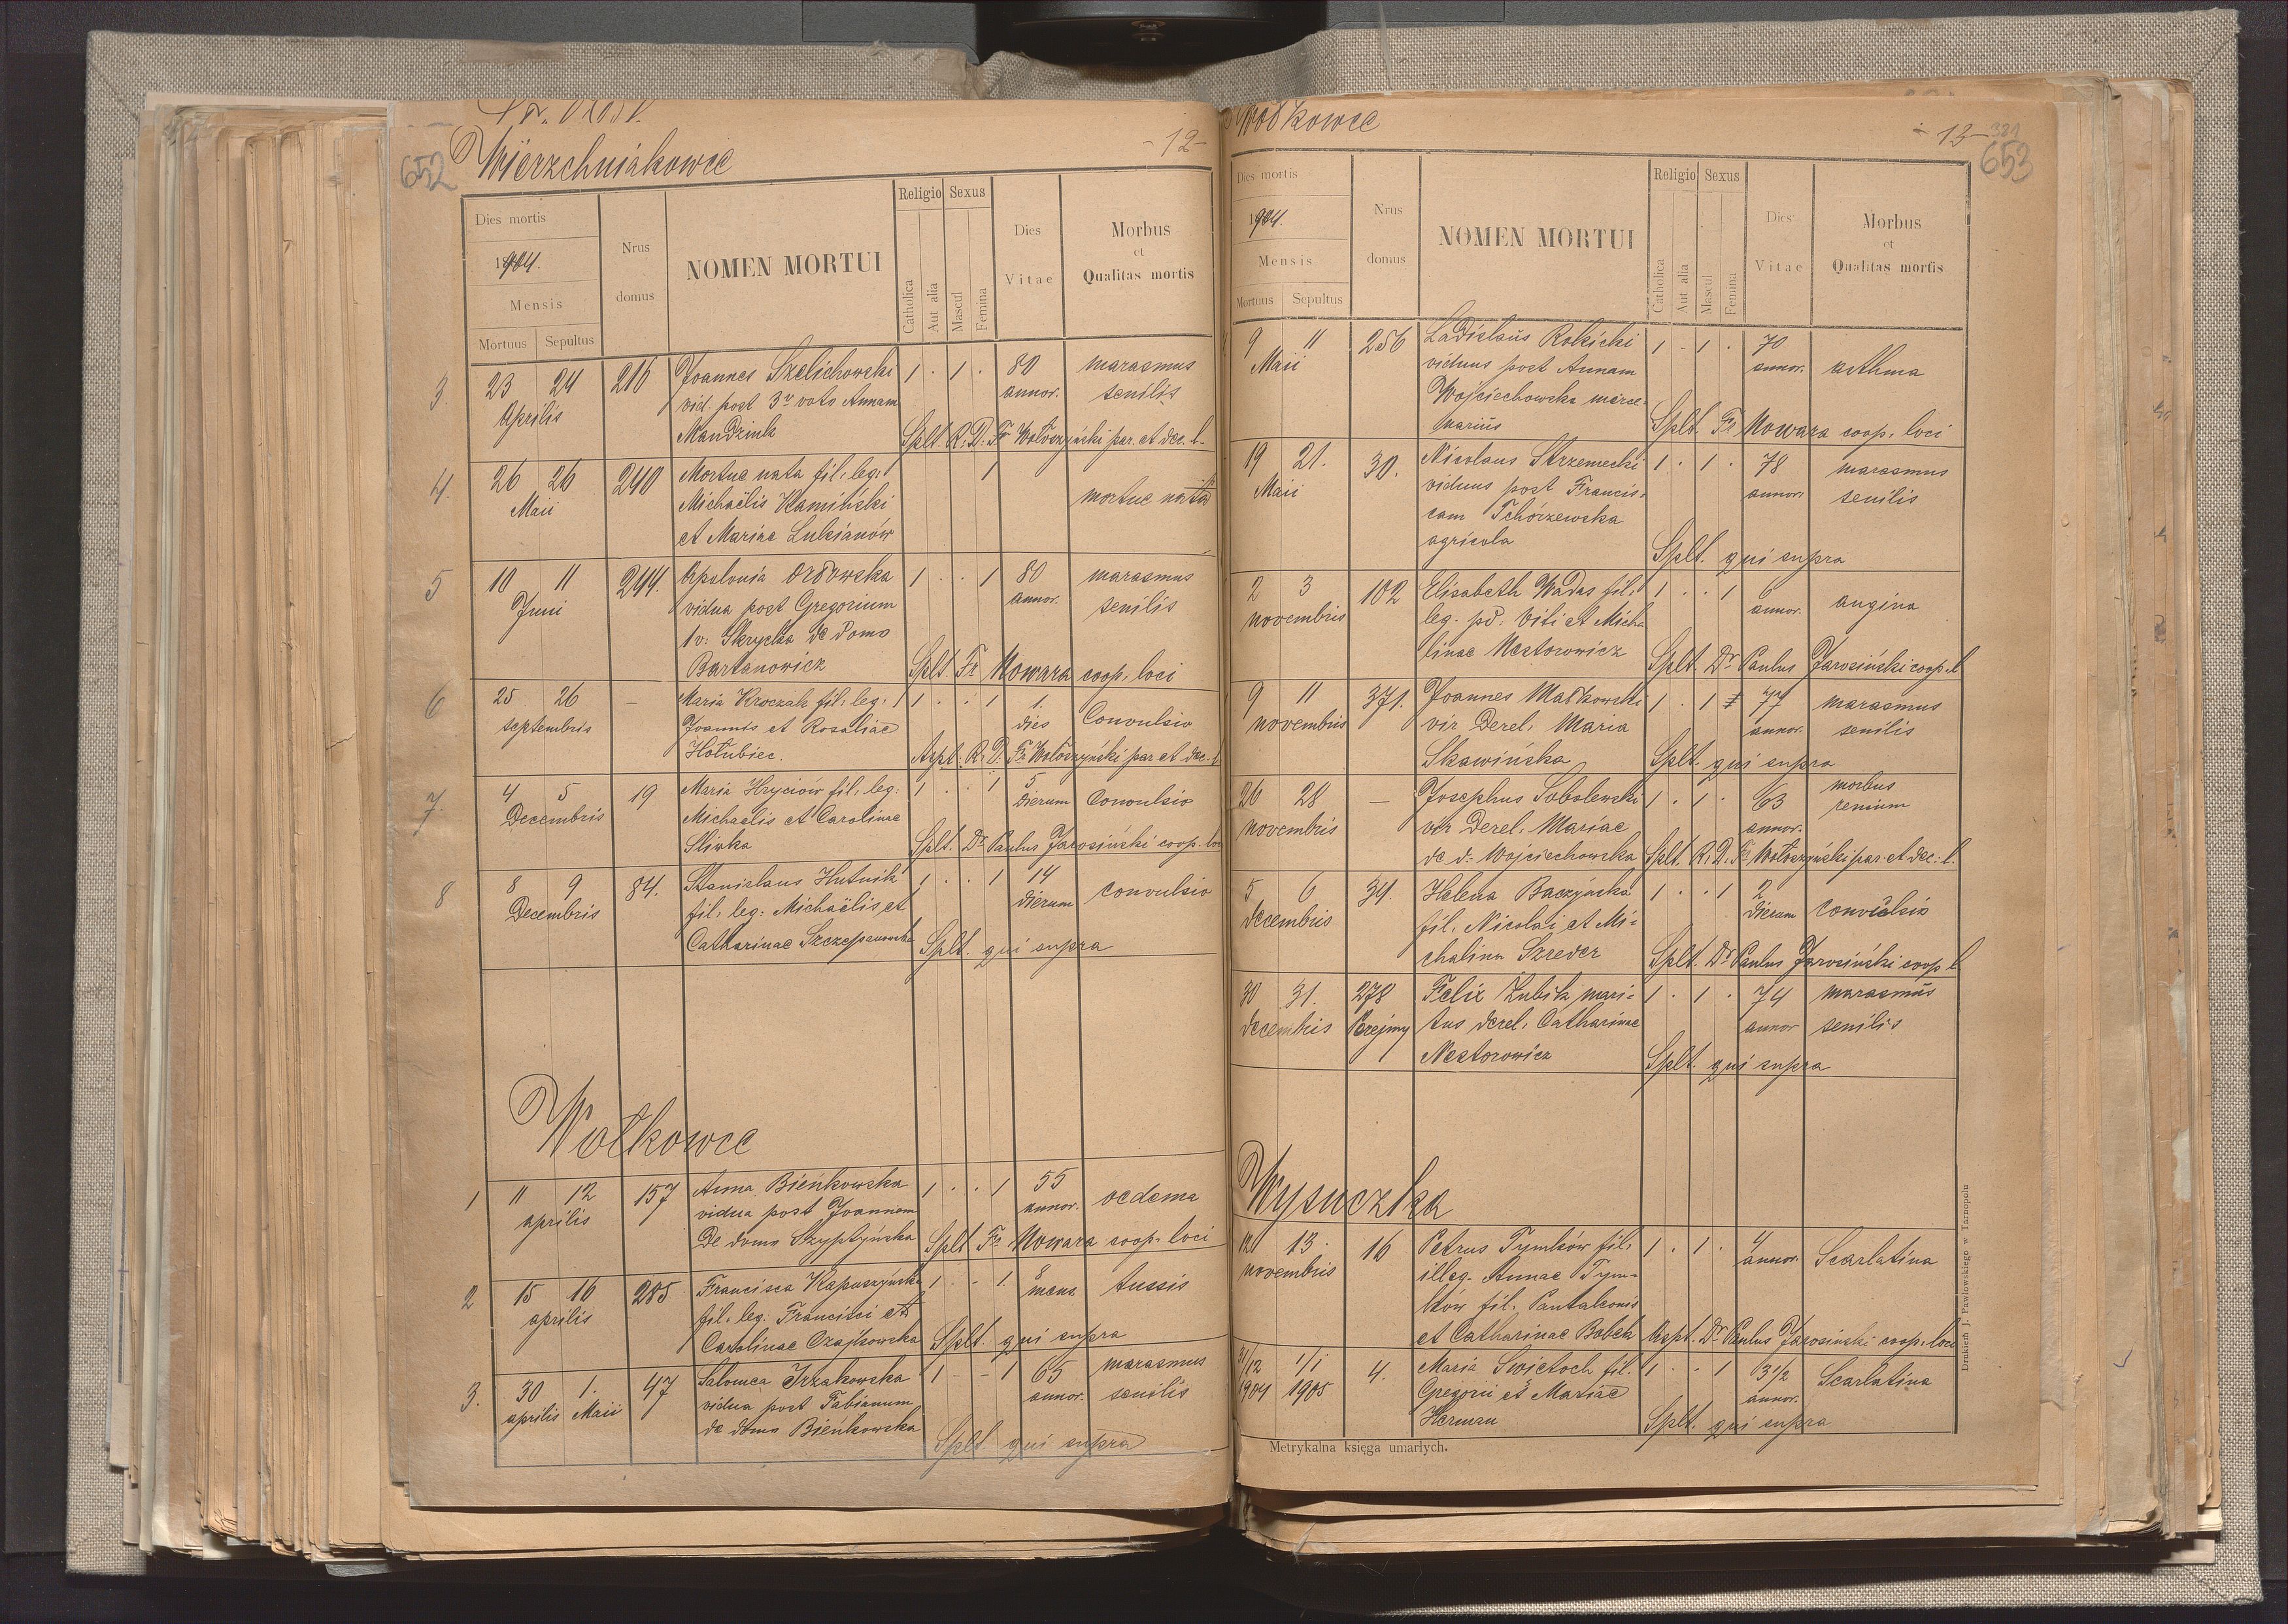 Wierzchniakowce
652
-12-
Dies mortis
1904.
Mensis
Mortuus Sepultus
Nrus domus
NOMEN MORTUI
Religio Sexus
Catholica Aut alia Mascul Femina
Dies Vitae
Morbus
et
Qualitas mortis
3. 23 24 216 Joannes Szelichowski 1 . 1 . 80 marasmus
Aprilis vid. post 3º voto Annam annor. senilis
Mandziuk Splt. R. D. Fr Wołoszyński par. et dec. l.
4. 26 26 240 Mortue nata fil. leg. 1
Maii Michaëlis Kamiński mortue nata
et Mariae Lukianów
5 10 11 244. Apolonia Orłowska 1 . . 1 80 marasmus
Juni vidua post Gregorium annor. senilis
1 v: Skrycka de Domo
Bartanowicz Splt. Fr Nowara coop. loci
6 25 26 — Maria Kroczak fil. leg. 1 . . 1 1.
septembris Joannis et Rosaliae dies Convulsio
Hołubiec. Aspt. R. D. Fr Wołoszyński par et dec. l
7. 4 5 19 Maria Hryciów fil. leg. 1 . . 1 5
Decembris Michaelis et Carolinae dierum Convulsio
Sliwka Splt. Dr Paulus Jarosiński coop. loci
8 8 9 84. Stanislaus Hutnik 1 . . 1 14
Decembris fil. leg. Michaëlis et dierum convulsio
Catharinae Szczepanowska Splt. qui supra
Wołkowce
1 11 12 157 Anna Bieńkowska 1 . . 1 55
aprilis vidua post Joannem annor. oedema
de domo Szyptyńska Splt Fr Nowara coop. loci
2 15 16 285 Francisca Kapuszyńska 1 - - 1. 8
aprilis fil. leg. Francisci et mens. tussis
Carolinae Czajkowska Splt. qui supra
3. 30 1. 47 Salomea Trzakowska 1 - - 1 65 marasmus
aprilis Maii vidua post Fabianum annor. senilis
de domo Bieńkowska
Splt qui supra
Wołkowce
-13-
381
653
Dies mortis
1904.
Mensis
Mortuus Sepultus
Nrus domus
NOMEN MORTUI
Religio Sexus
Catholica Aut alia Mascul Femina
Dies Vitae
Morbus
et
Qualitas mortis
9 11 256 Ladislaus Rokicki 1 - 1 . 70
Maii viduus post Annam annor. asthma
Wojciechowska merce-
narius Splt. Fr Nowara coop. loci
19 21. 30. Nicolaus Strzemecki 1 . 1 . 78 marasmus
Maii viduus post Francis- annor. senilis
cam Tchórzewska
agricola Splt. qui supra
2 3 102 Elisabeth Wadas fil. 1 . . 1 6 angina
novembris leg. pd. Viti et Micha annor.
linae Nestorowicz Splt. Dr Paulus Jarosiński coop. l
9 11 371. Joannes Małkowski 1 . 1 77 marasmus
novembris vir derel. Maria annor. senilis
Skawińska Splt. qui supra
26 28 — Josephus Sobolewski 1 . 1 . 63 morbus
novembris vir derel. Mariae annor. renium
de d. Wojciechowska Splt. R. D. Fr Wołoszyński par. et dec. l.
5 6 34. Helena Baczyńska 1 . . 1 2
decembris fil. Nicolai et Mi- dierum convulsio
chalina Szreder Splt. Dr Paulus Jarosiński coop l
30 31. 278 Felix Zubik mari- 1 . 1 . 74 marasmus
decembris Perejmy tus derel. Catharinae annor senilis
Nestorowicz Splt. qui supra
Wysuczka
12 13. 16 Petrus Tymków fil. 1 . 1 . 4
novembris illeg. Annae Tym- annor. Scarlatina
ków fil. Pantaleonis
et Catharinae Bobek Aspt. Dr Paulus Jarosinski coop. loci
31/12 1/1 4. Maria Swietoch fil. 1 . - 1 3 1/2 Scarlatina
1904 1905 Gregorii et Mariae annor.
Herman Splt. qui supra
Metrykalna księga umarłych.
Drukiem J. Pawłowskiego w Tarnopolu